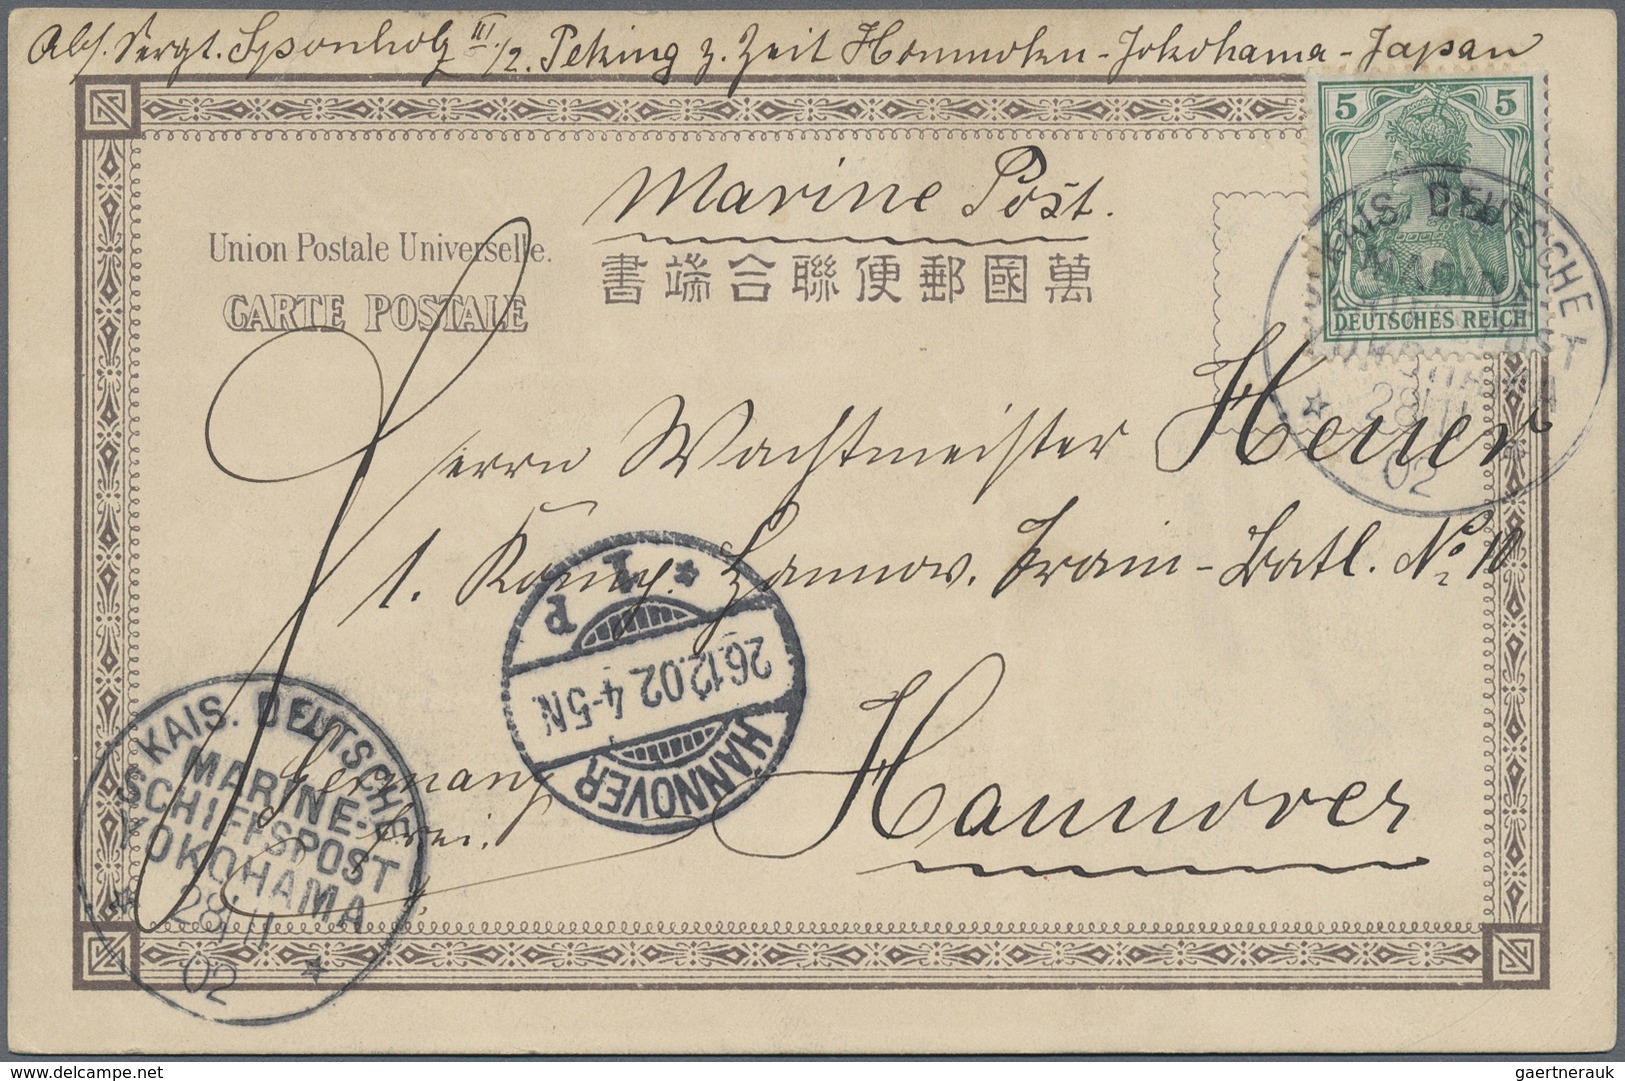 Abs. Sergt. Sponholz III/2. Peking z. Zeit Hommoku-Jokohama-Japan
5 5
DEUTSCHES REICH
Marine Post.
Union Postale Universelle.
萬國郵便聯合端書
CARTE POSTALE
KAIS. DEUTSCHE
28/11
02
Herrn Wachtmeister Heuer
1. Königl. Hannov. Train-Batl. No 10
Hannover
Germany
HANNOVER
26.12.02 4-5 N.
1 P
KAIS. DEUTSCHE
MARINE-
SCHIFFSPOST
YOKOHAMA
28/11
02
gaertnerauk